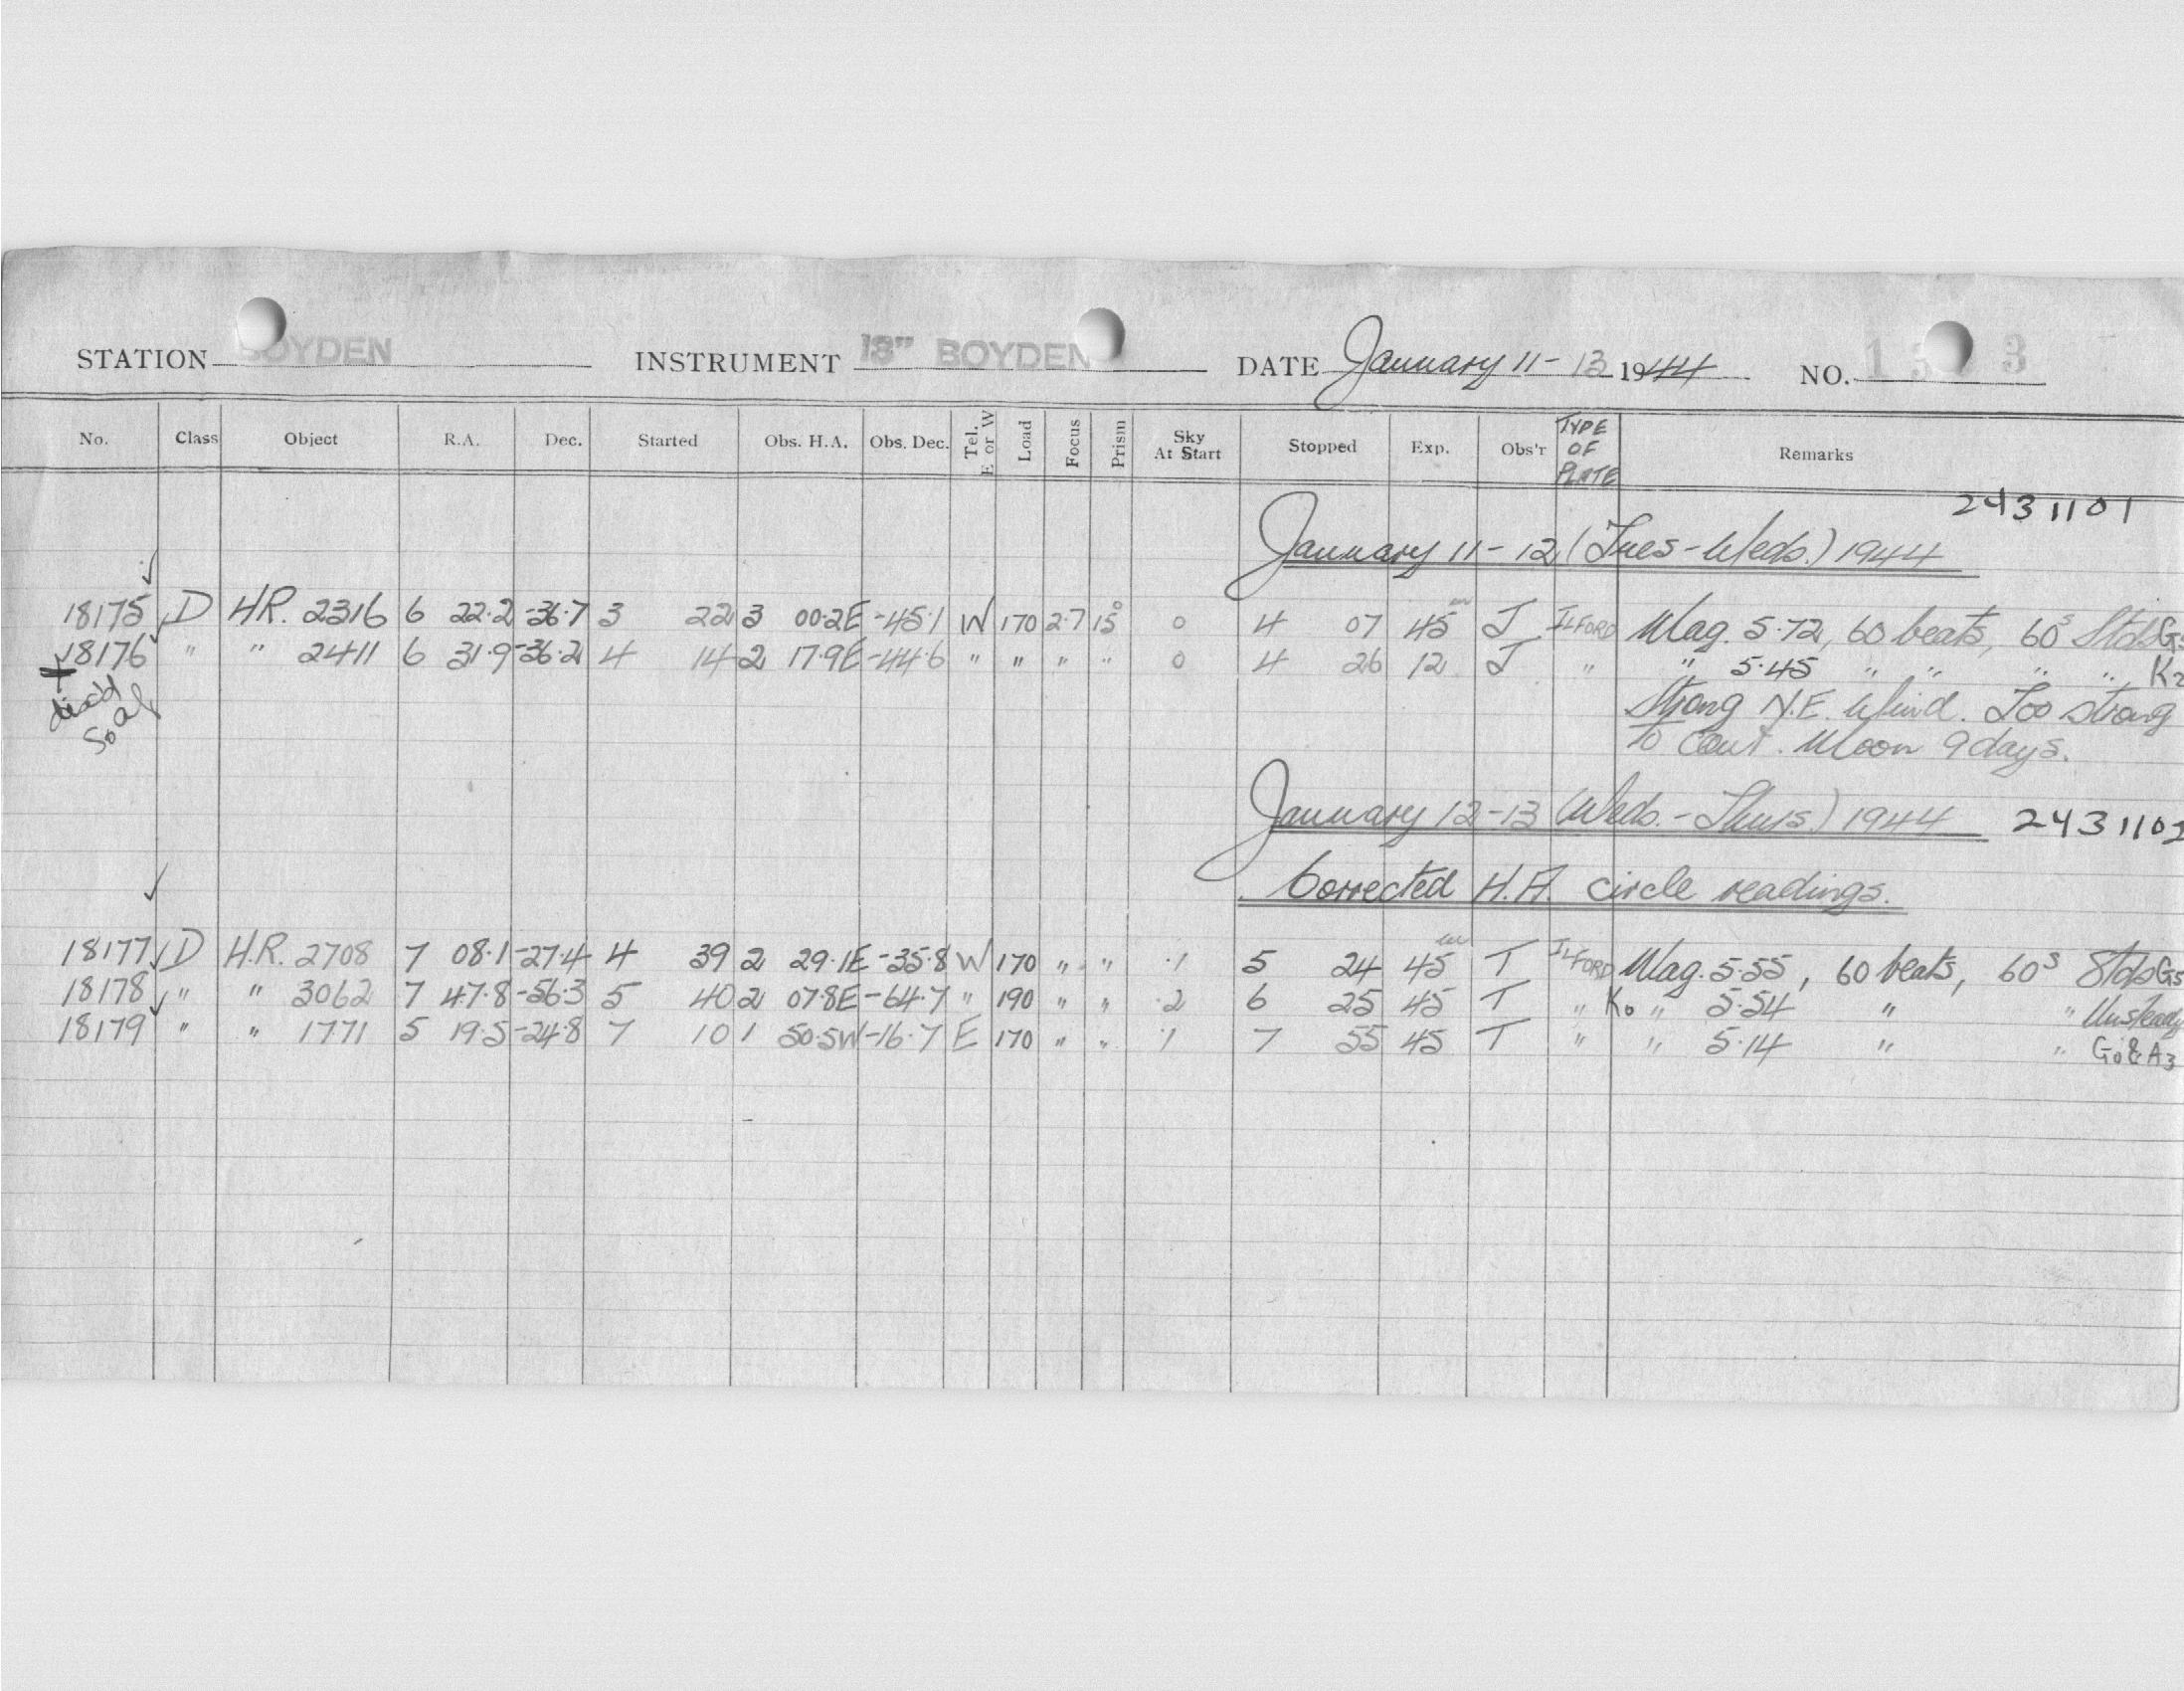 STATION BOYDEN INSTRUMENT 18" BOYDEN DATE January 11-13 1944 NO. 1 3
No. Class Object R.A. Dec. Started Obs. H.A. Obs. Dec. Tel. E or W Load Focus Prism Sky At Start Stopped Exp. Obs'r TYPE OF PLATE Remarks
2431101
January 11-12 (Tues-Weds.) 1944
18175 D HR. 2316 6 22.2 -36.7 3 22 3 00.2E -45.1 W 170 2.7 15° 0 4 07 45 J ILFORD Mag. 5.72, 60 beats, 60s Stds G5
18176 " " 2411 6 31.9 -36.2 4 14 2 17.9E -44.6 " " " " 0 4 26 12 J " " 5.45 " " " " K2
Strong N.E. Wind. Too strong
to cont. Moon 9 days.
January 12-13 (Weds.-Thurs.) 1944 2431102
Corrected H.A. circle readings.
18177 D H.R. 2708 7 08.1 -27.4 4 39 2 29.1E -35.8 W 170 " " .1 5 24 45 T ILFORD Mag. 5.55, 60 beats, 60s Stds G5
18178 " " 3062 7 47.8 -56.3 5 40 2 07.8E -64.7 " 190 " " .2 6 25 45 T " K0 " 5.54 " " Unsteady
18179 " " 1771 5 19.5 -24.8 7 10 1 50.5W -16.7 E 170 " " .1 7 55 45 T " " 5.14 " " G0 & A3